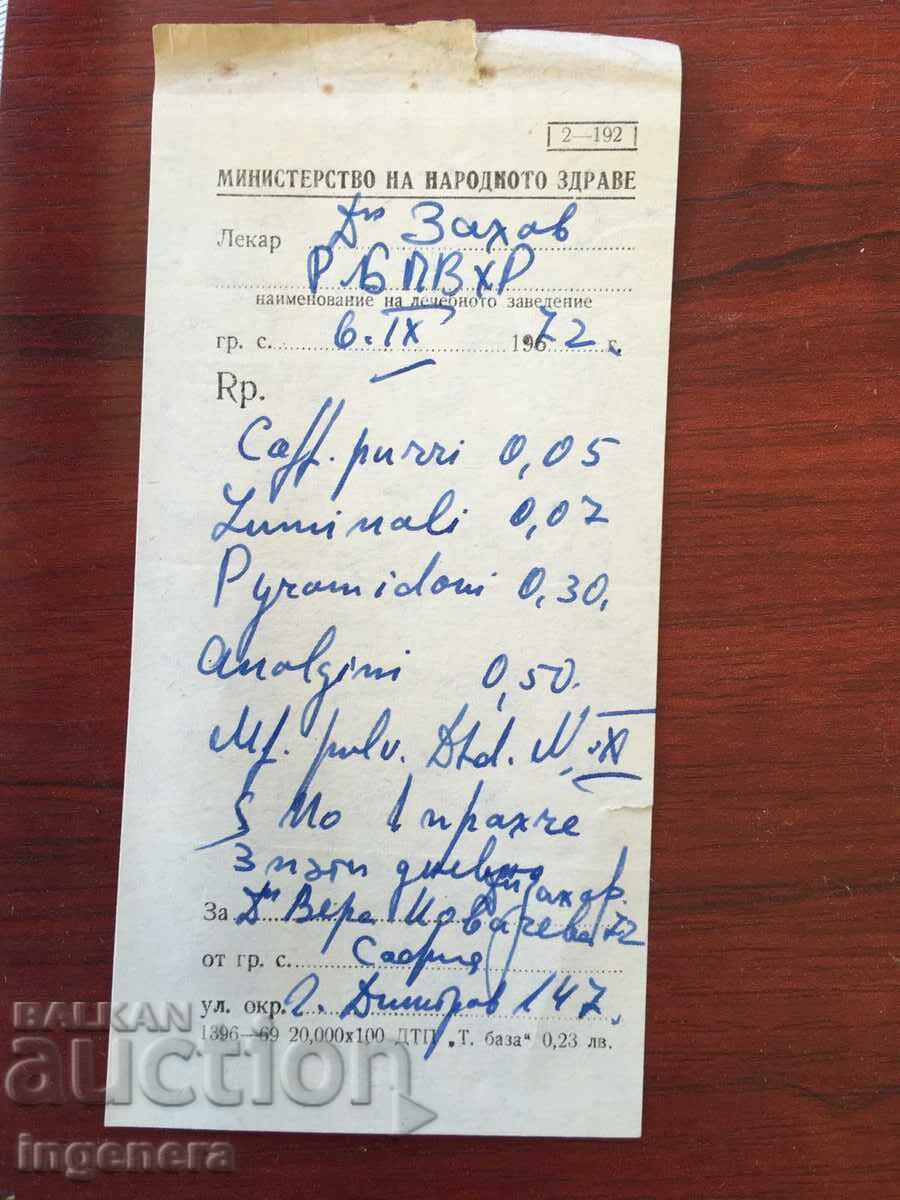 2—192
МИНИСТЕРСТВО НА НАРОДНОТО ЗДРАВЕ
Лекар Др Захов
РБПВХР
наименование на лечебното заведение
гр. с. 6. IX 196 72 г.
Rp.
Caff. purri 0,05
Luminali 0,07
Pyramidoni 0,30.
Analgini 0,50.
Mf. pulv. Dtd. N. XX
S по 1 прахче
3 пъти дневно
За Др Вера Ковачева 72
от гр. с. София
ул. окр. Г. Димитров 147
1396—69 20,000х100 ДТП „Т. база“ 0,23 лв.
BALKAN
auction
ingenera